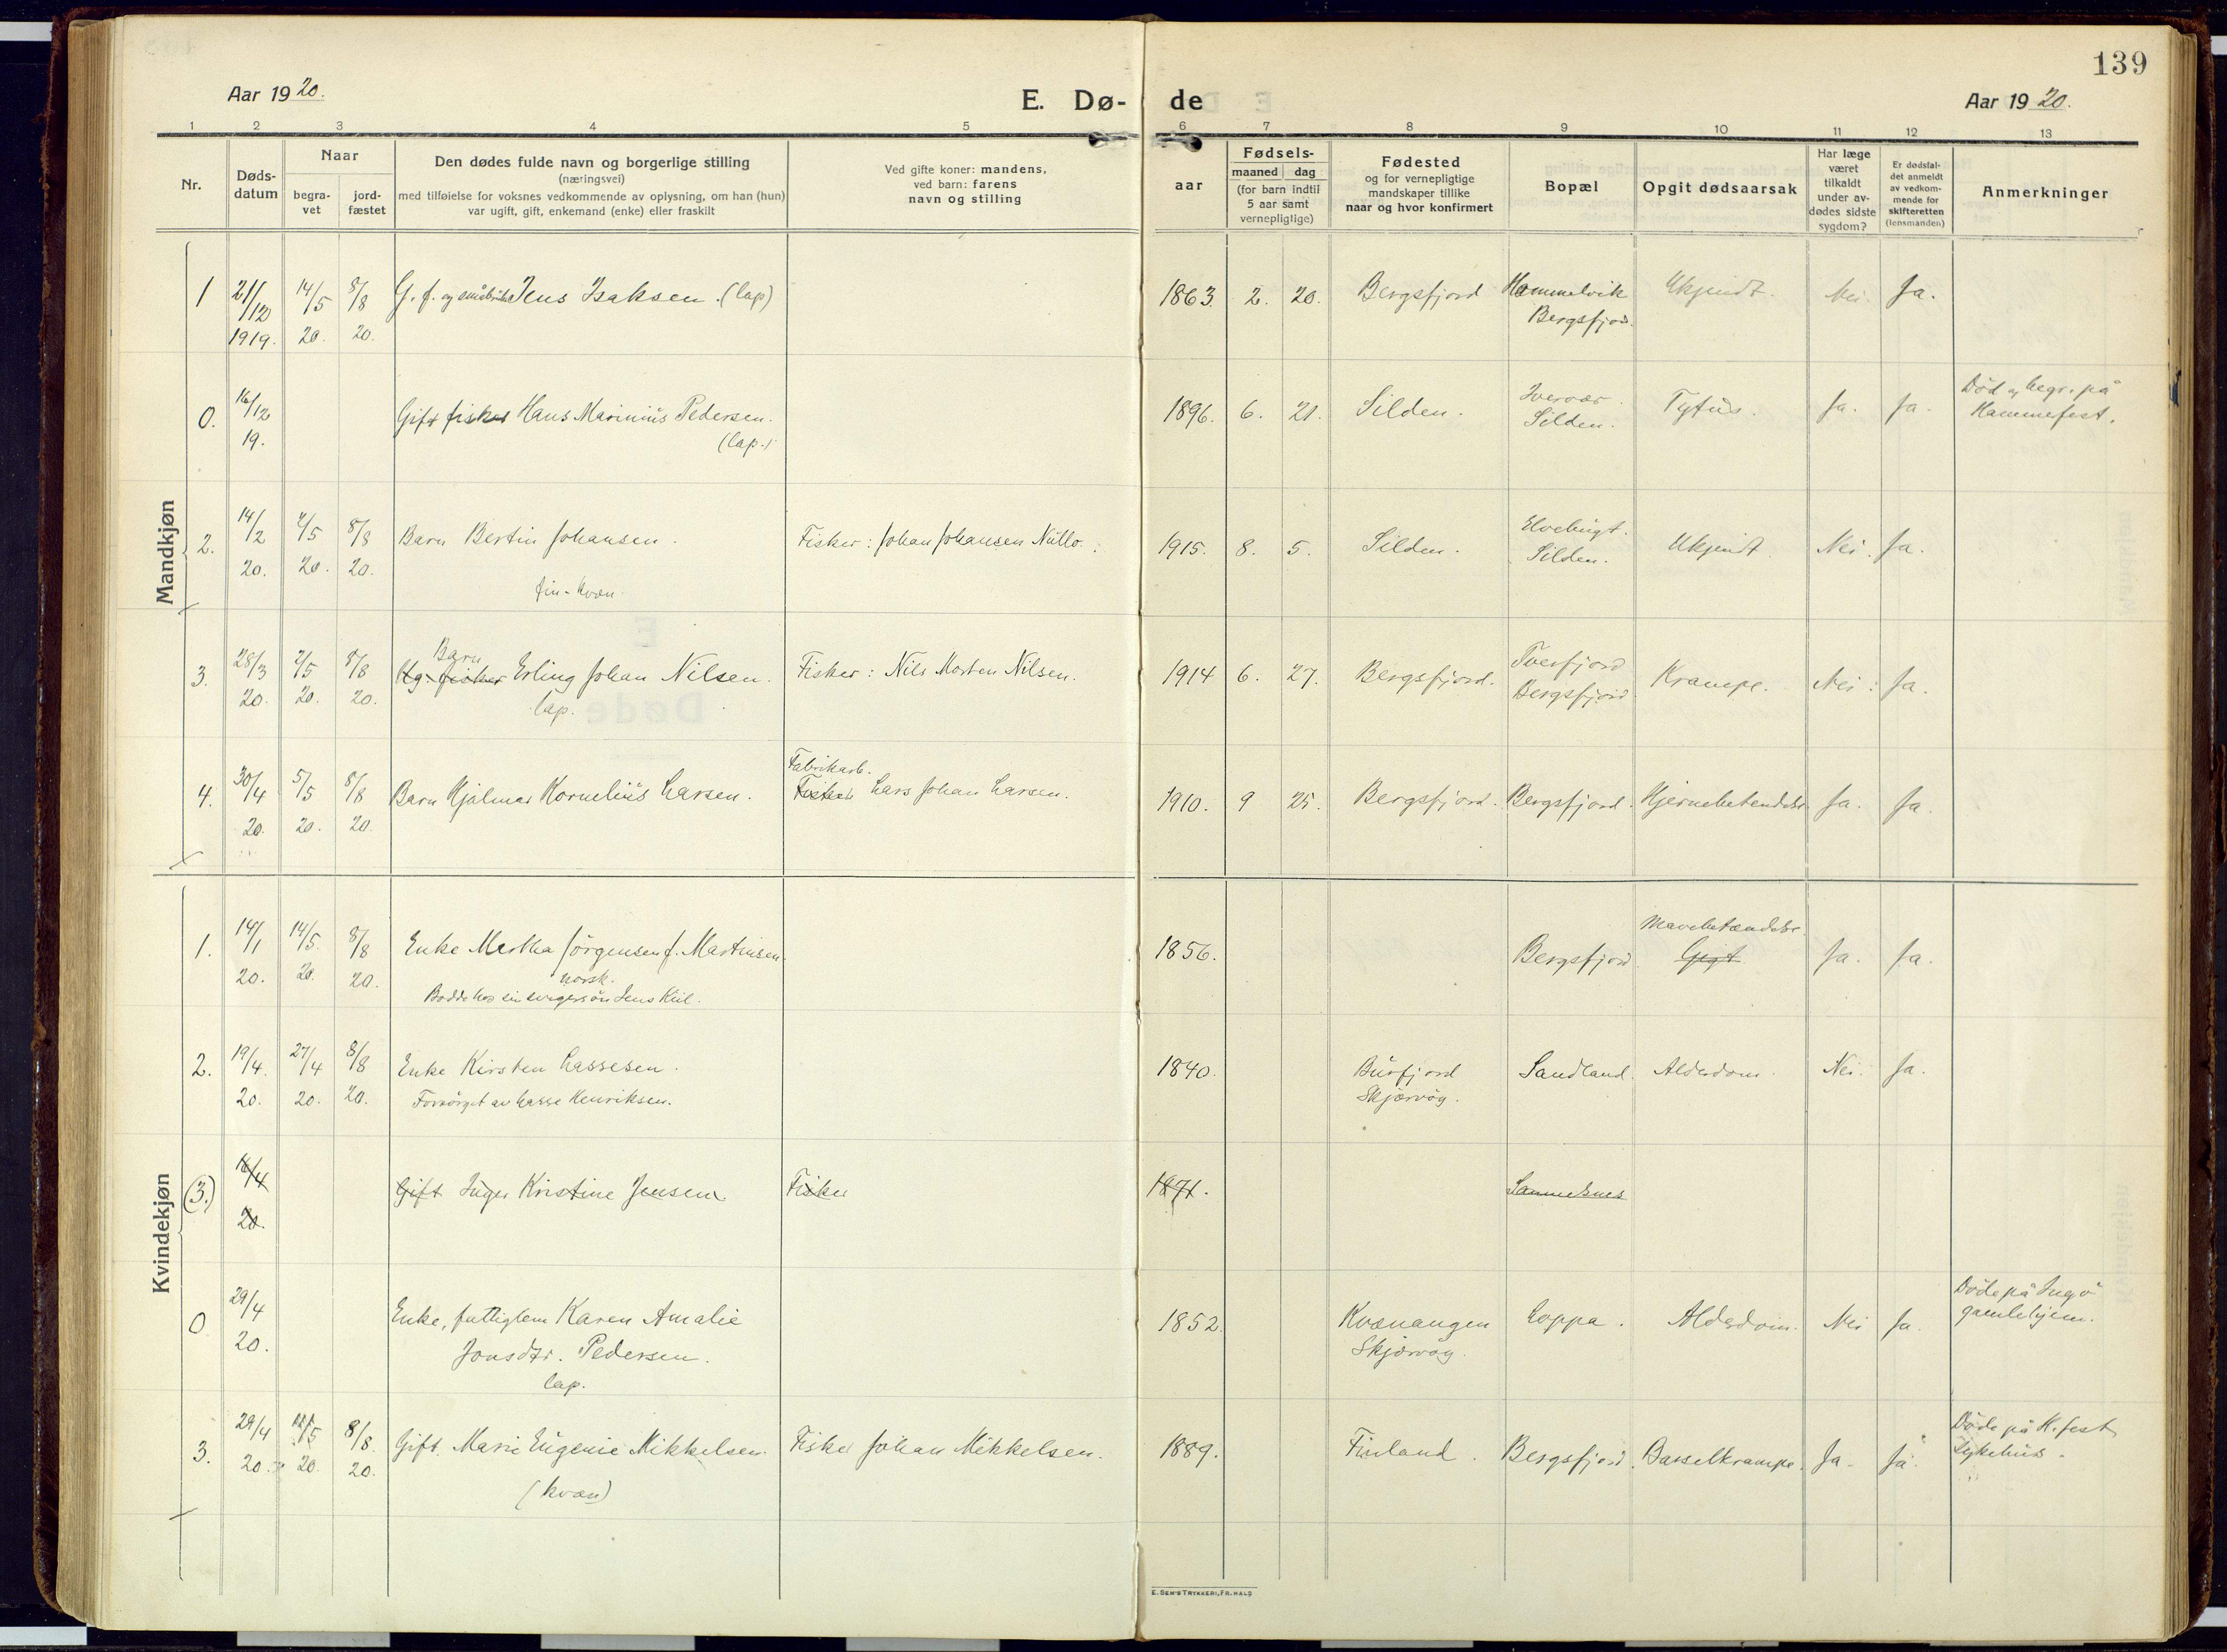 139
Aar 1920.
E. Dø- de
Aar 1920.
1 2 3 4 5 6 7 8 9 10 11 12 13
Nr.
Døds-
datum
Naar
begra-
vet
jord-
fæstet
Den dødes fulde navn og borgerlige stilling
(næringsvei)
med tilføielse for voksnes vedkommende av oplysning, om han (hun)
var ugift, gift, enkemand (enke) eller fraskilt
Ved gifte koner: mandens,
ved barn: farens
navn og stilling
Fødsels-
aar
maaned dag
(for barn indtil
5 aar samt
vernepligtige)
Fødested
og for vernepligtige
mandskaper tillike
naar og hvor konfirmert
Bopæl
Opgit dødsaarsak
Har læge
været
tilkaldt
under av-
dødes sidste
sygdom?
Er dødsfal-
det anmeldt
av vedkom-
mende for
skifteretten
(lensmanden)
Anmerkninger
Mandkjøn
1 21/12 14/5 8/8 G. f. og småbruker Jens Isaksen. (lap) 1863. 2. 20. Bergsfjord Hammelvik Ukjendt. Nei. Ja.
1919. 20. 20. Bergsfjord.
0. 16/12 Gift fisker Hans Marinius Pedersen. 1896. 6. 21. Silden. Tyfus. Ja. Ja. Død og begr. på
19. (lap.) Silden. Hammefest.
2. 14/2 4/5 8/8 Barn Bertin Johansen. Fisker: Johan Johansen Nullo. 1915. 8. 5. Silden. Elvebugt. Ukjendt. Nei. Ja.
20. 20. 20. Silden.
fin-kvæn
Barn
3. 28/3 4/5 8/8 Ug. fisker Erling Johan Nilsen. Fisker: Nils Morten Nilsen. 1914 6. 27. Bergsfjord. Tverfjord Krampe. Nei. Ja.
20. 20. 20. lap. Bergsfjord.
Fabrikarb.
4. 30/4 5/5 8/8 Barn Hjalmar Kornelius Larsen. Fisker Lars Johan Larsen. 1910. 9 25. Bergsfjord. Bergsfjord. Hjernebetendelse Ja. Ja.
20. 20. 20.
Kvindekjøn
Mavebetændelse.
1. 14/1 14/5. 8/8 Enke Mertha Jörgensen f. Martinsen. 1856. Bergsfjord. Gigt Ja. Ja.
20. 20. 20. norsk.
Bodde hos sin svigersön Jens Kiil.
2. 19/4. 27/4 8/8 Enke Kirsten Lassesen. 1840. Burfjord Sandland. Alderdom. Nei. Ja.
20. 20. 20. Forsörget av Lasse Henriksen. Skjærvøy.
(3.) 16/4 Gift Inger Kristine Jensen Fisker 1871. Sammelsnes
20.
0 29/4 Enke, fattiglem Karen Amalie 1852. Kvænangen Loppa. Alderdom. Nei Ja. Döde på Ingö
20. Jonsdtr. Pedersen. Skjærvøy. gamlehjem.
lap.
3. 29/4 12/5 8/8. Gift. Marie Eugenie Mikkelsen. Fisker Johan Mikkelsen. 1889. Finland. Bergsfjord. Barselkrampe. Ja. Ja. Döde på H.fest
20. 20. 20. Sykehus.
(kvæn)
E. SEM'S TRYKKERI, FR.HALD